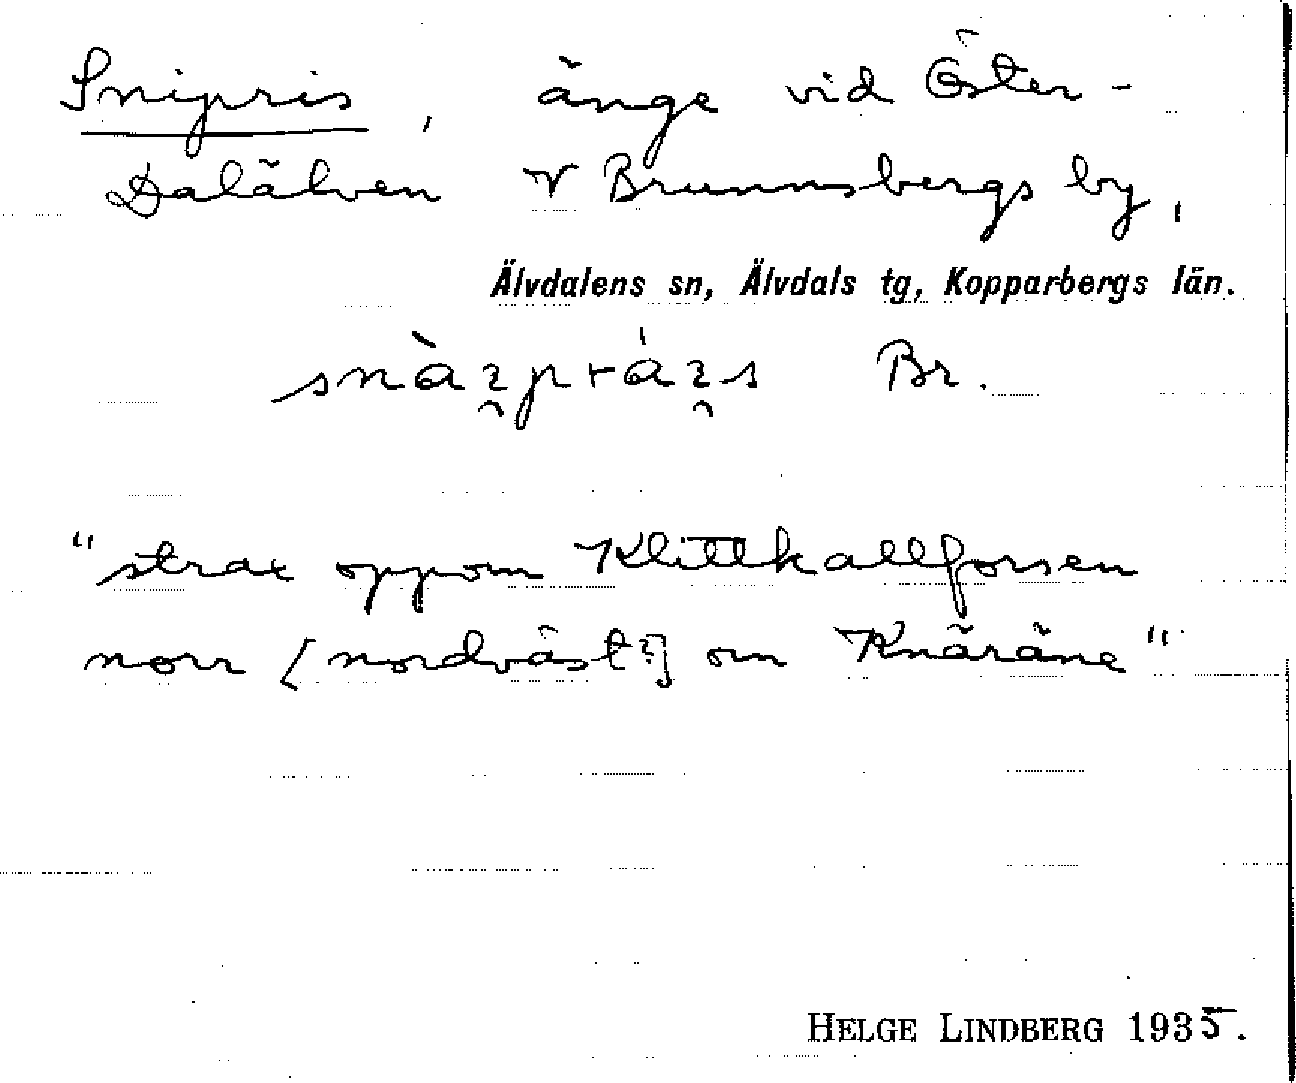 Snipris, änge vid Öster-
Dalälven v Brunnsbergs by,
Älvdalens sn, Älvdals tg, Kopparbergs län.
Br.
"strax oppom Klittkallforsen
norr [nordväst?] om Knäräne"
HELGE LINDBERG 1935.